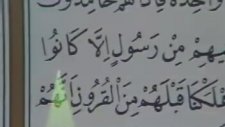 وَاحِدَةً فَإِذَاهُمْ خَامِدُونَ
ـيهِمْ مِنْ رَسُولٍ إِلَّا كَانُوا
ـهْلَكْنَا قَبْلَهُمْ مِنَ الْقُرُونِ أَنَّهُمْ